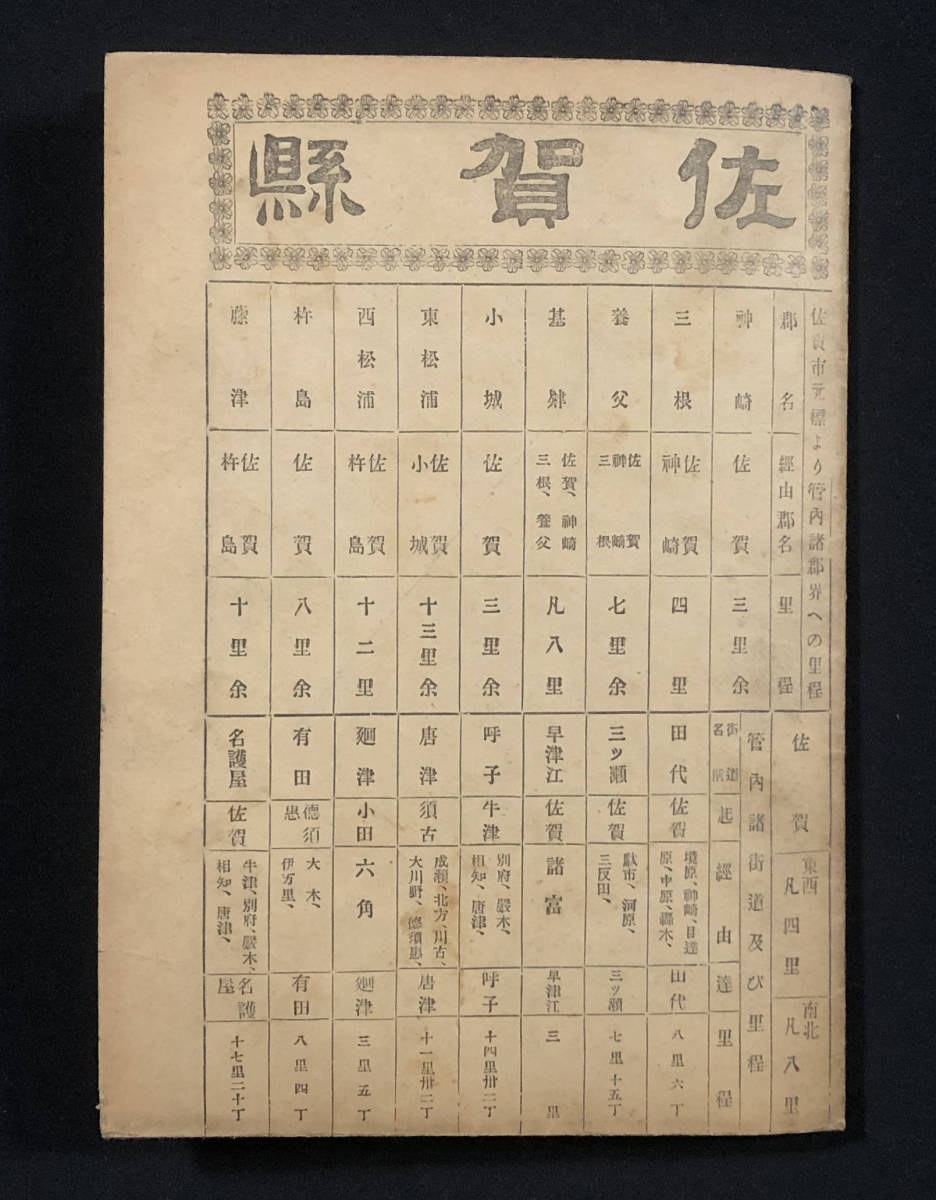 佐賀縣
佐賀市元標より管內諸郡界への里程
郡名 經由郡名 里程
神崎 佐賀 三里余
三根 佐賀 神崎 四里
養父 佐賀 神崎 三根 七里余
基肄 佐賀、神崎 三根、養父 凡八里
小城 佐賀 三里余
東松浦 佐賀 小城 十三里余
西松浦 佐賀 杵島 十二里
杵島 佐賀 八里余
藤津 佐賀 杵島 十里余
佐賀 東西 凡四里 南北 凡八里
管內諸街道及び里程
街道名 起 經由 達 里程
田代 佐賀 境原、神崎、目達原、中原、轟木、 田代 八里六丁
三ツ瀬 佐賀 駄市、河原、三反田、 三ツ瀬 七里十五丁
早津江 佐賀 諸富 早津江 三里
呼子 牛津 別府、嚴木、相知、唐津、 呼子 十四里卅二丁
唐津 須古 成瀬、北方、川古、大川野、德須惠、 唐津 十一里卅二丁
廻津 小田 六角 廻津 三里五丁
有田 德須惠 大木、伊万里、 有田 八里四丁
名護屋 佐賀 牛津、別府、嚴木、相知、唐津、 名護屋 十七里二十丁